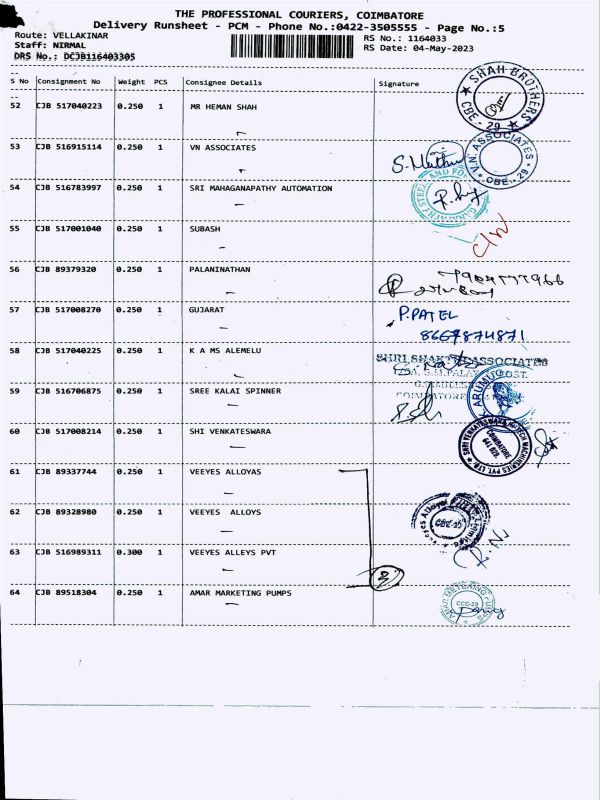 THE PROFESSIONAL COURIERS, COIMBATORE
Delivery Runsheet - PCM - Phone No.:0422-3505555 - Page No.:5
Route: VELLAKINAR
RS No.: 1164033
Staff: NIRMAL
RS Date: 04-May-2023
DRS No.: DCJB116403305
S No Consignment No Weight PCS Consignee Details Signature
52 CJB 517040223 0.250 1 MR HEMAN SHAH
SHAH BROTHERS CBE - 29
53 CJB 516915114 0.250 1 VN ASSOCIATES
V.N. ASSOCIATES CBE. 29
54 CJB 516783997 0.250 1 SRI MAHAGANAPATHY AUTOMATION
55 CJB 517001040 0.250 1 SUBASH
56 CJB 89379320 0.250 1 PALANINATHAN
57 CJB 517008270 0.250 1 GUJARAT
P.PATEL
8667874871
58 CJB 517040225 0.250 1 K A MS ALEMELU
SHRI SHAKTHI ASSOCIATES
59 CJB 516706875 0.250 1 SREE KALAI SPINNER
60 CJB 517008214 0.250 1 SHI VENKATESWARA
61 CJB 89337744 0.250 1 VEEYES ALLOYAS
62 CJB 89328980 0.250 1 VEEYES ALLOYS
CBE-29
63 CJB 516989311 0.300 1 VEEYES ALLEYS PVT
3
64 CJB 89518304 0.250 1 AMAR MARKETING PUMPS
CBE-29